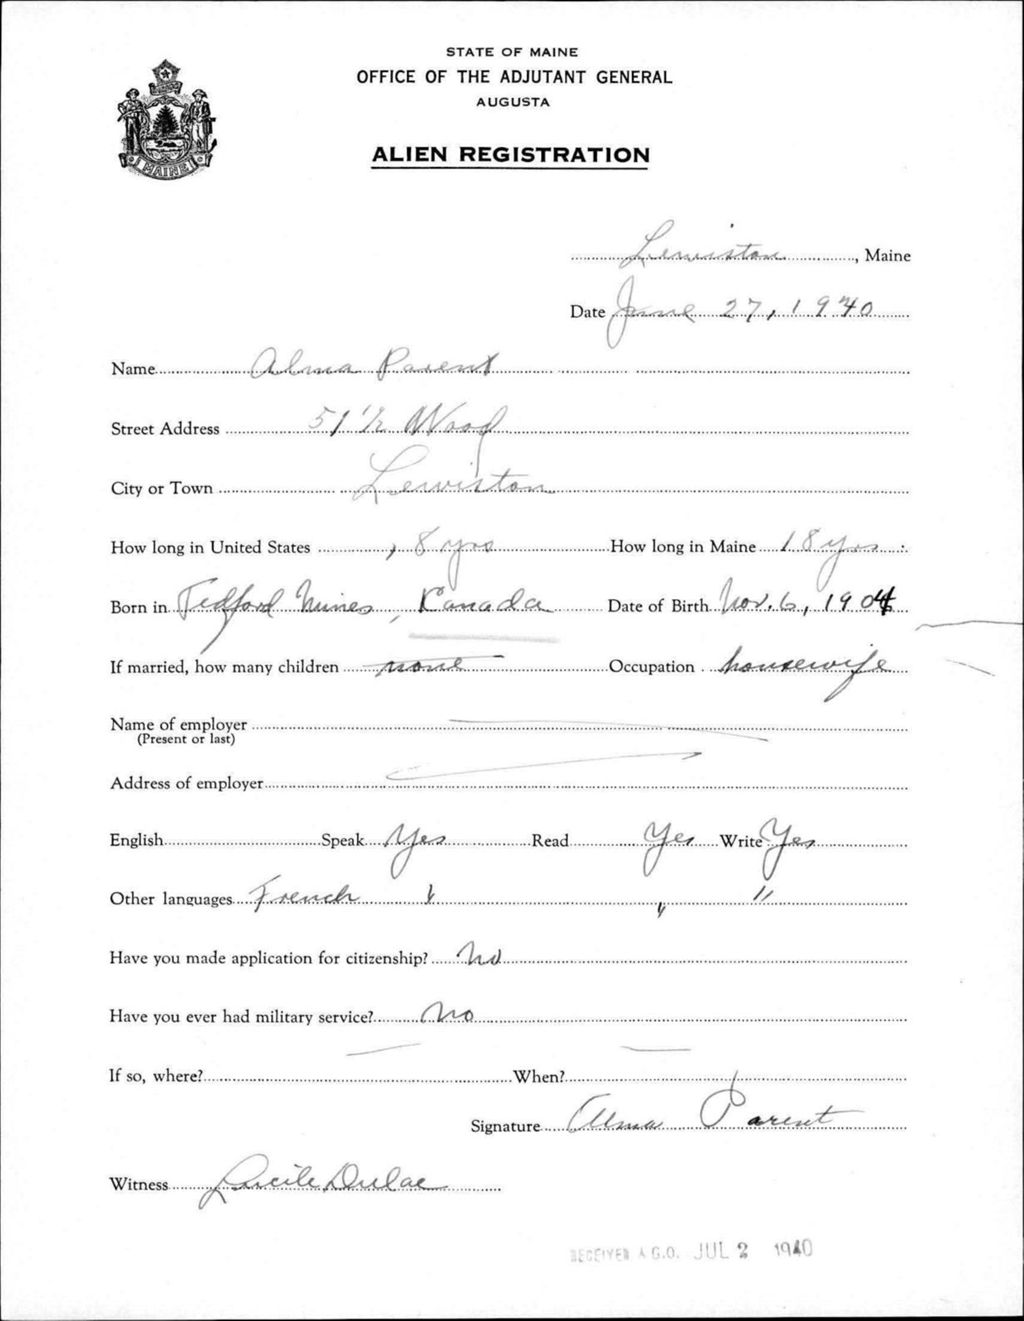 STATE OF MAINE
OFFICE OF THE ADJUTANT GENERAL
AUGUSTA
ALIEN REGISTRATION
MAINE
Lewiston, Maine
Date June 27, 1940
Name Alma Parent
Street Address 51 1/2 Wood
City or Town Lewiston
How long in United States 18 yrs How long in Maine 18 yrs.
Born in Tedford Mines, Canada Date of Birth Nov. 6, 1904
If married, how many children none Occupation housewife
Name of employer
(Present or last)
Address of employer
English Speak Yes Read Yes Write Yes
Other languages French " " "
Have you made application for citizenship? No
Have you ever had military service? No
If so, where? When?
Signature Alma Parent
Witness Lucile Dulac
RECEIVED A.G.O. JUL 2 1940